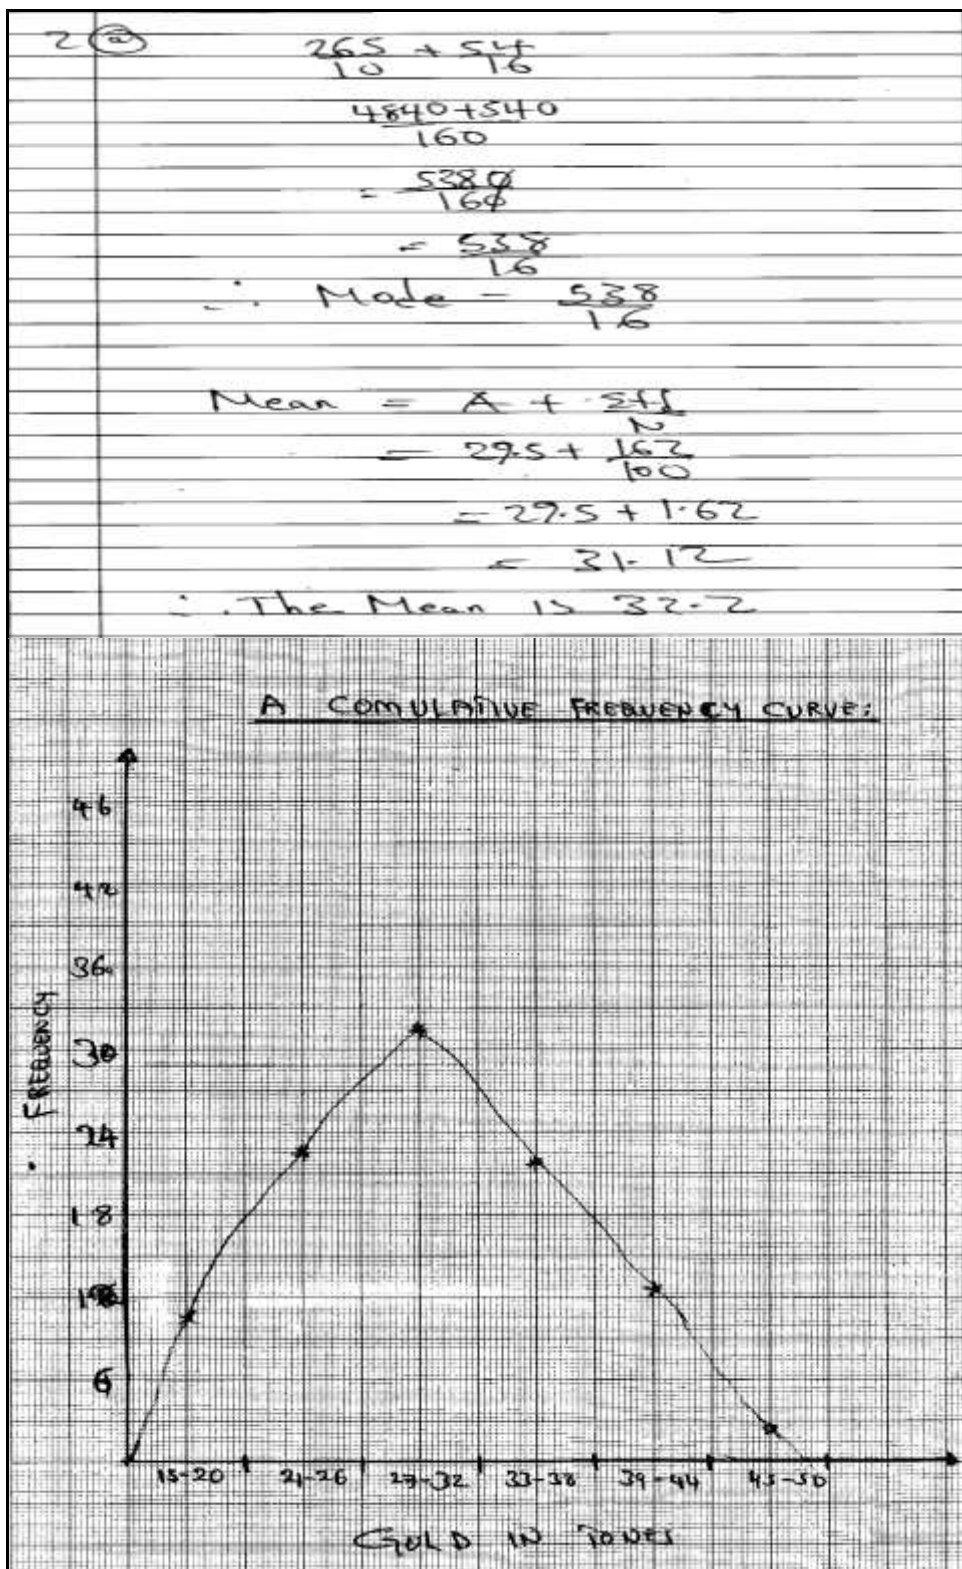 2 (a)
265/10 + 54/16
4840+540/160
= 5380/160
= 538/16
∴ Mode = 538/16
Mean = A + Σfd/N
= 29.5 + 162/100
= 29.5 + 1.62
= 31.12
∴ The Mean is 32.2
A COMULATIVE FREQUENCY CURVE:
FREQUENCY
46
42
36
30
24
18
6
15-20 21-26 27-32 33-38 39-44 45-50
GOLD IN TONES